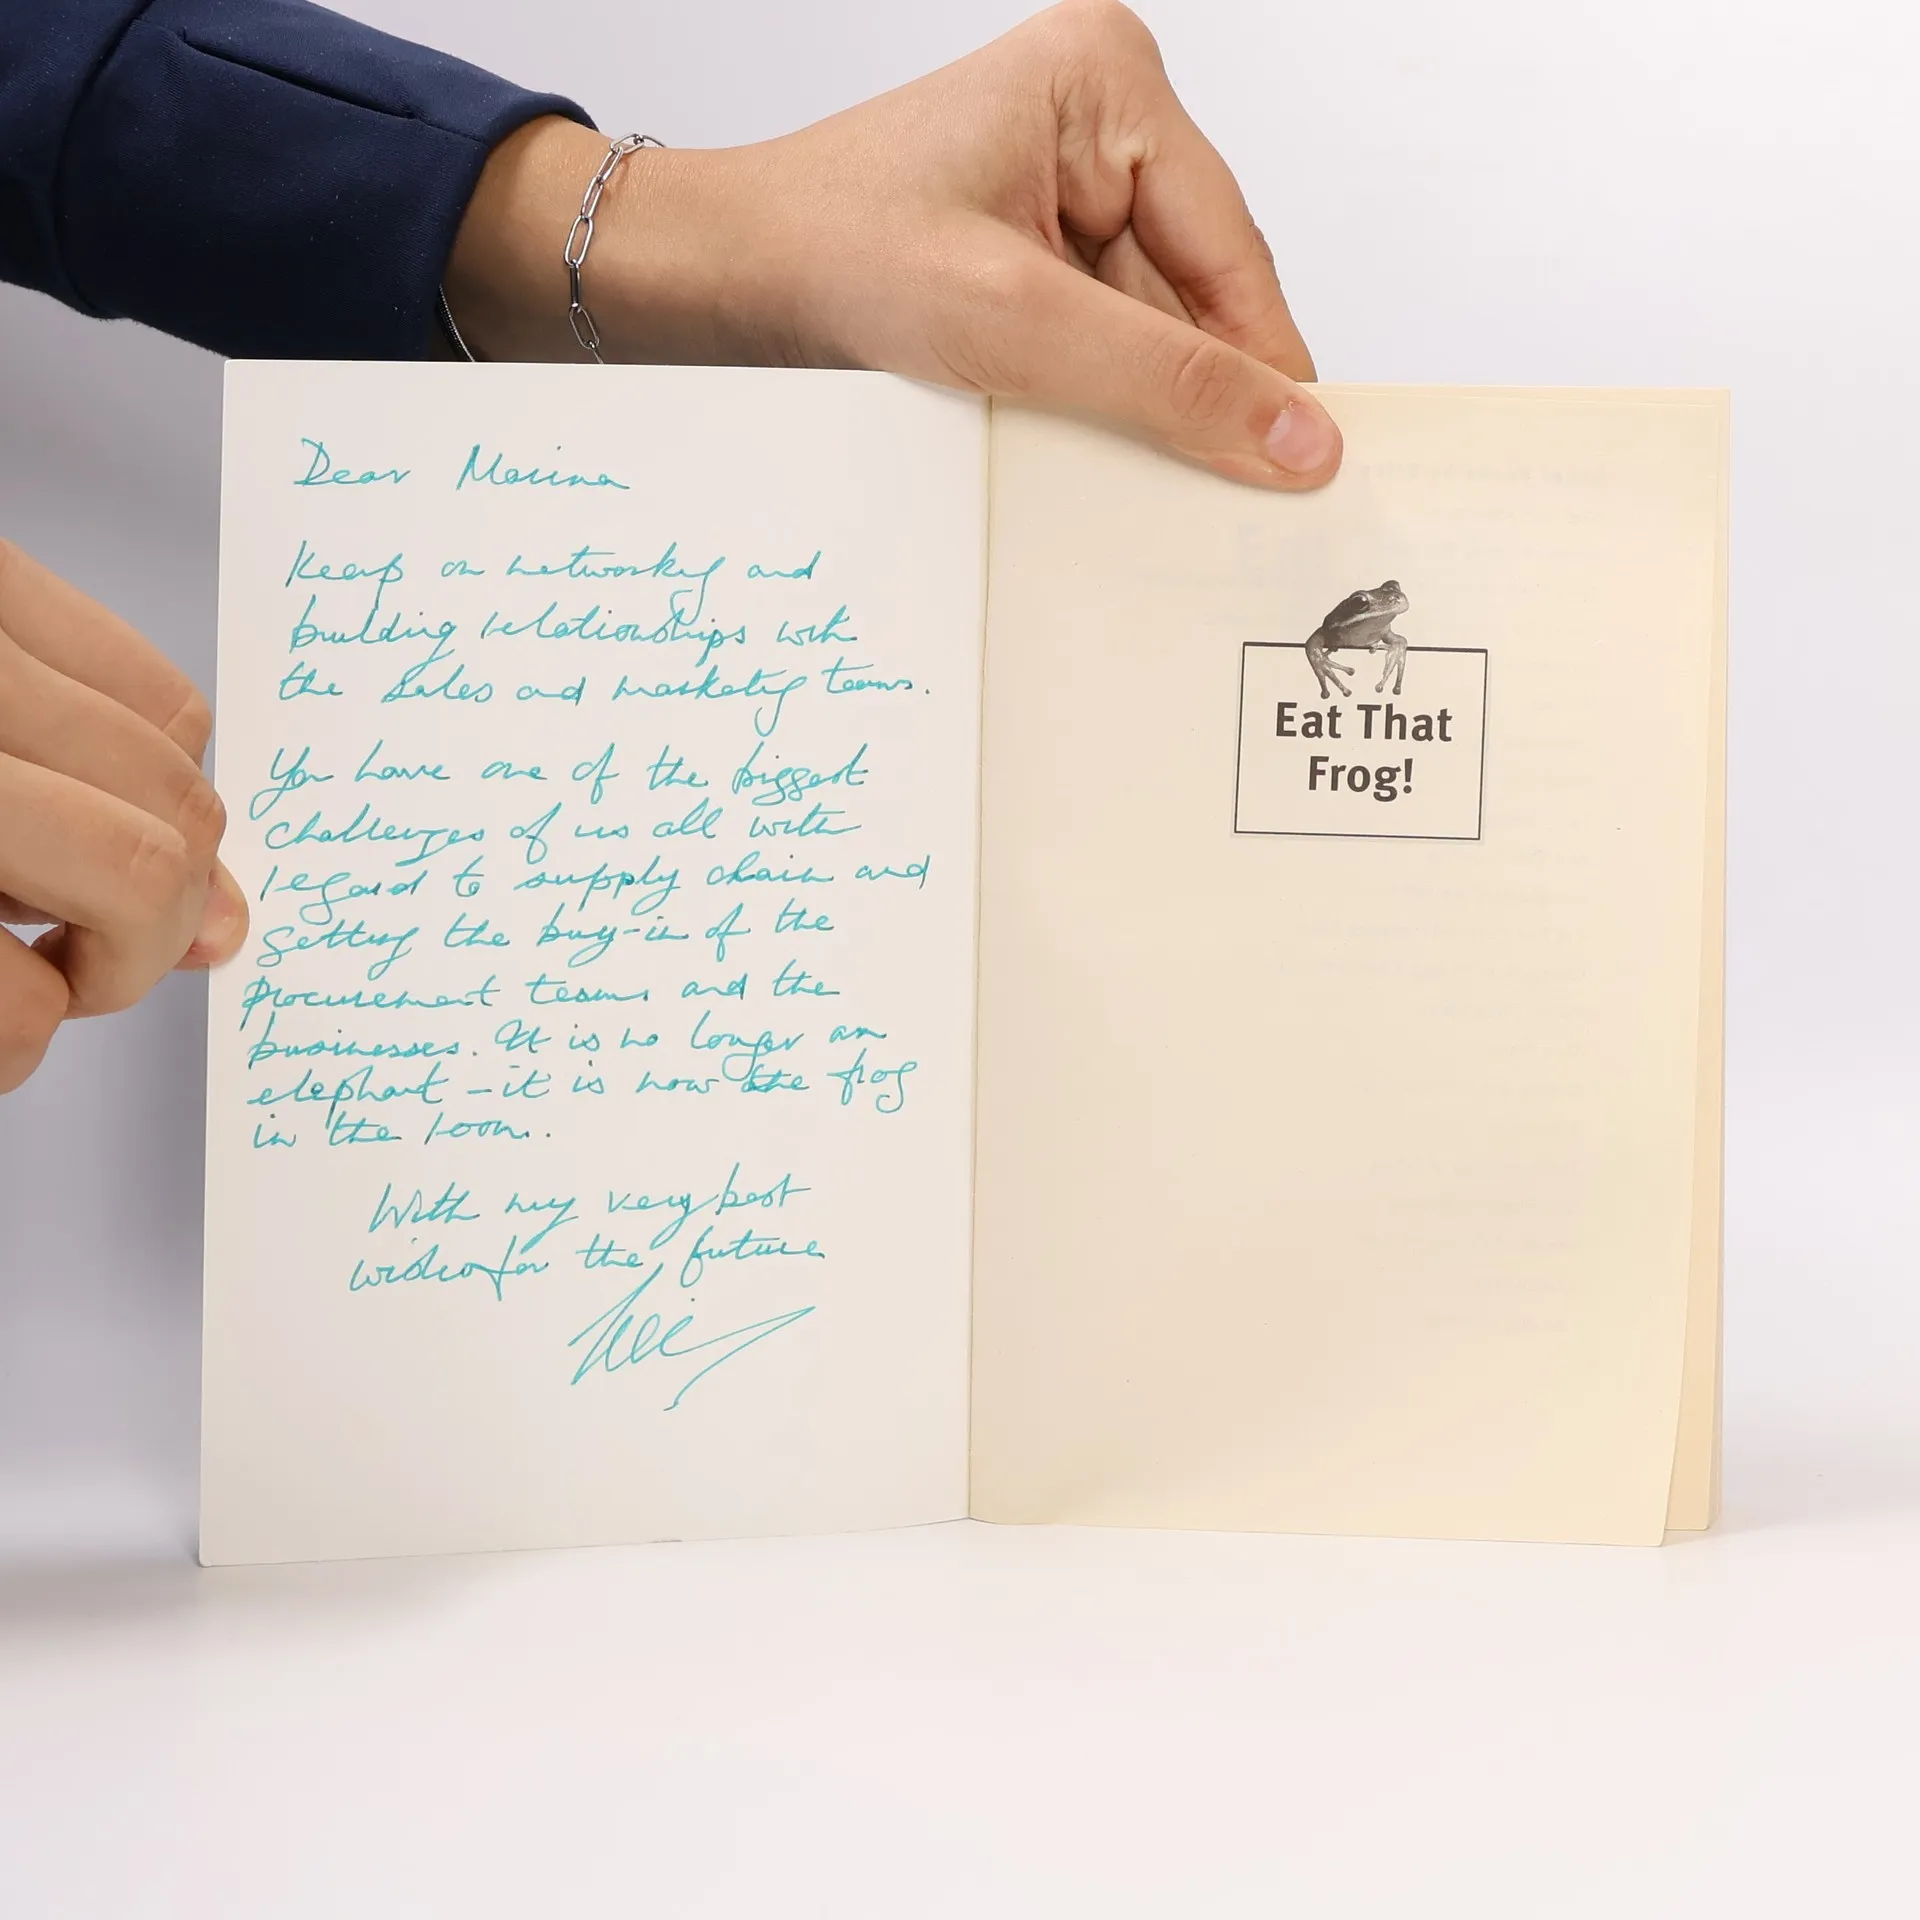 Dear Marina
Keep on networking and
building relationships with
the sales and marketing teams.
You have one of the biggest
challenges of us all with
regard to supply chain and
getting the buy-in of the
procurement teams and the
businesses. It is no longer an
elephant - it is now the frog
in the room.
With my very best
wishes for the future
Eat That
Frog!